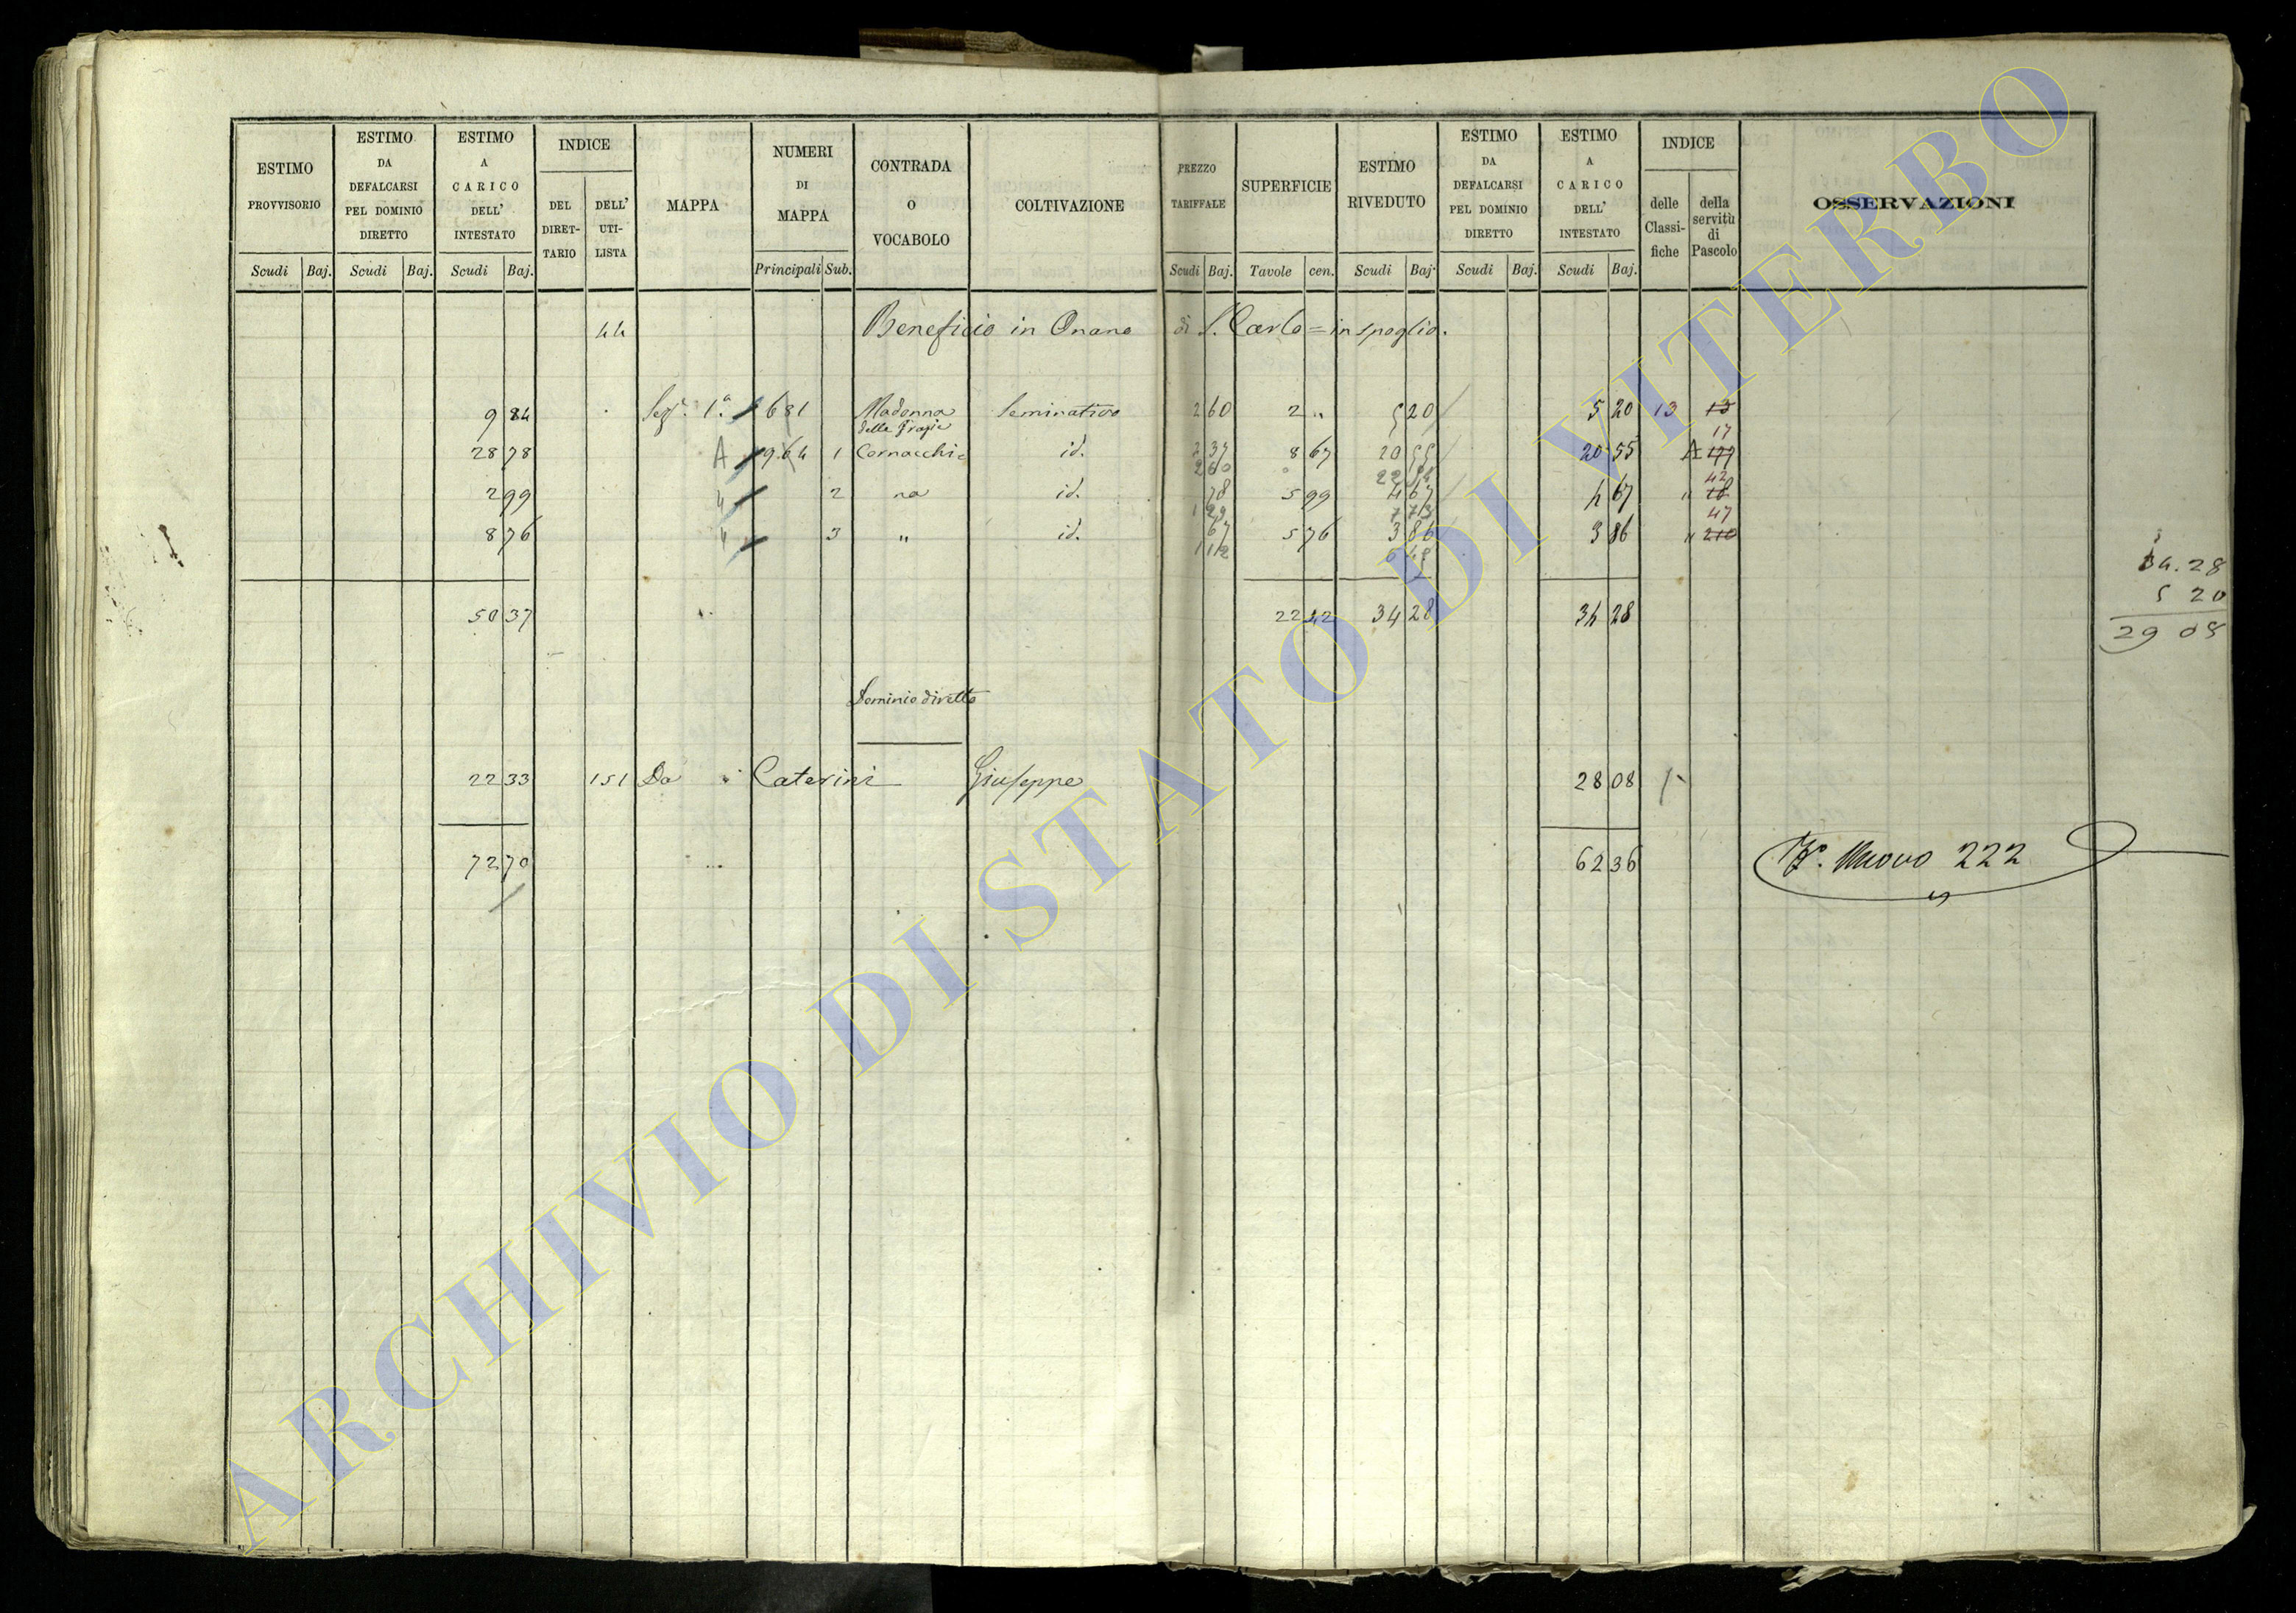 ESTIMO PROVVISORIO Scudi Baj.
ESTIMO DA DEFALCARSI PEL DOMINIO DIRETTO Scudi Baj.
ESTIMO A CARICO DELL' INTESTATO Scudi Baj.
INDICE DEL DIRET-TARIO DELL' UTI-LISTA
MAPPA
NUMERI DI MAPPA Principali Sub.
CONTRADA O VOCABOLO
COLTIVAZIONE
PREZZO TARIFFALE Scudi Baj.
SUPERFICIE Tavole cen.
ESTIMO RIVEDUTO Scudi Baj.
ESTIMO DA DEFALCARSI PEL DOMINIO DIRETTO Scudi Baj.
ESTIMO A CARICO DELL' INTESTATO Scudi Baj.
INDICE delle Classi-fiche della servitù di Pascolo
OSSERVAZIONI
44 Beneficio in Onano di S. Carlo = in spoglio.
9 84 Sez. 1.ª 681 Madonna delle Grazie Seminativo 2 60 2 " 5 20 5 20 13 13
17
28 78 A 964 1 Cornacchi= id. 2 37 8 67 20 55 20 55 A 177
2 60 22 54 42
2 99 " 2 na id. 78 5 99 4 67 4 67 " 18
1 29 7 73 47
8 76 " 3 " id. 67 5 76 3 86 3 86 " 210
1 12 6 45
34.28
5 20
29 08
50 37 22 42 34 28 34 28
Dominio diretto
22 33 151 Da Caterini Giuseppe 28 08
72 70 62 36 V.º Nuovo 222
ARCHIVIO DI STATO DI VITERBO